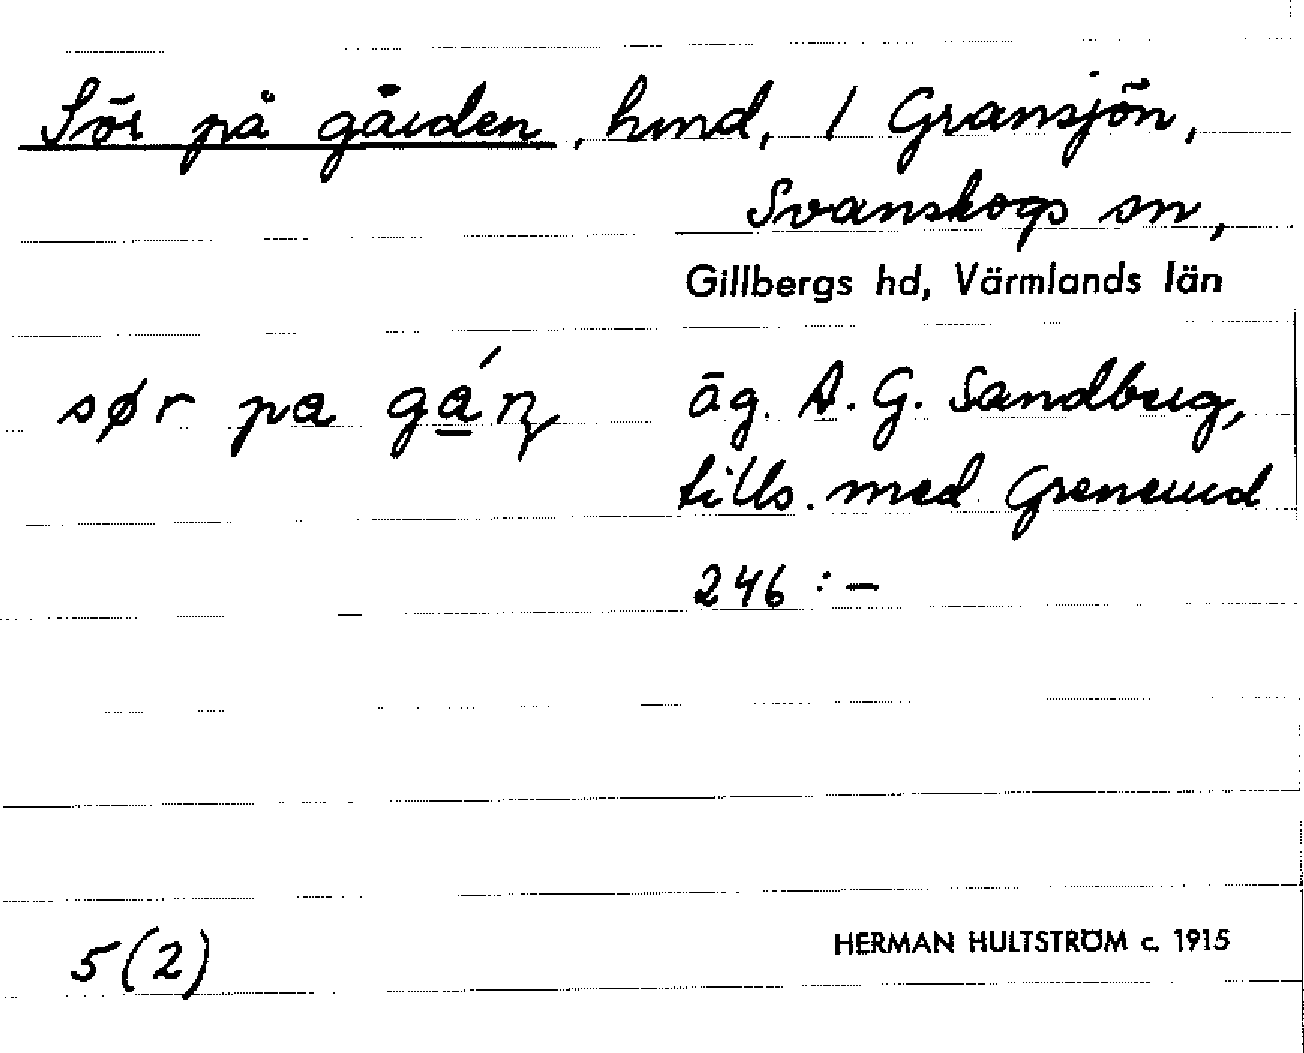 Sör på gården, hmd, 1 Gransjön,
Svanskogs sn,
Gillbergs hd, Värmlands län
sør pa gá̱n̥
äg. A. G. Sandberg,
tills. med Grenerud
246:-
5(2)
HERMAN HULTSTRÖM c. 1915